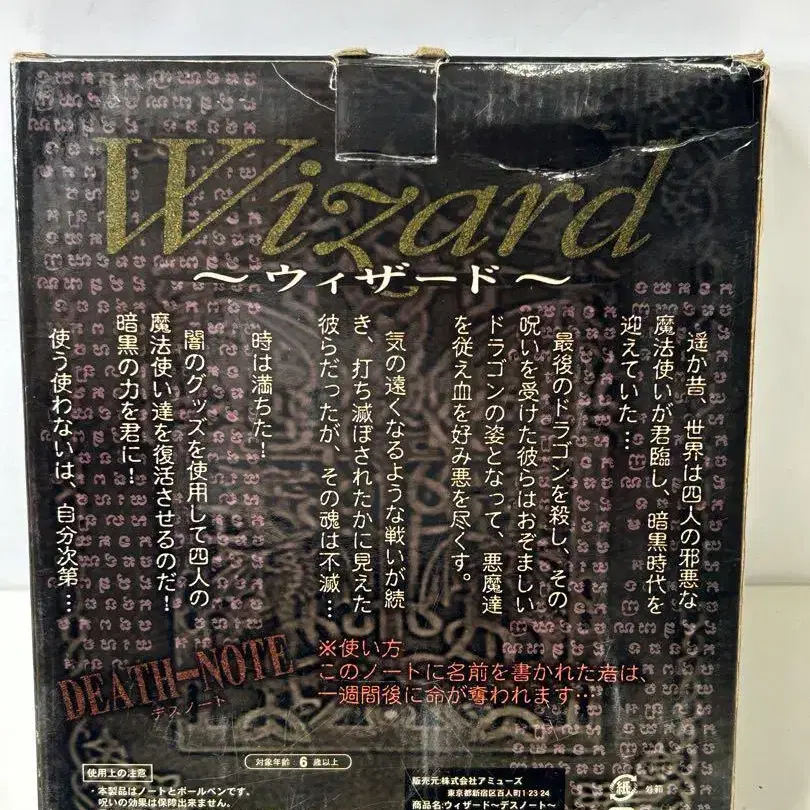 Wizard
～ウィザード～
遥か昔、世界は四人の邪悪な
魔法使いが君臨し、暗黒時代を
迎えていた…
最後のドラゴンを殺し、その
呪いを受けた彼らはおぞましい
ドラゴンの姿となって、悪魔達
を従え血を好み悪を尽くす。
気の遠くなるような戦いが続
き、打ち滅ぼされたかに見えた
彼らだったが、その魂は不滅…
時は満ちた！
闇のグッズを使用して四人の
魔法使い達を復活させるのだ！
暗黒の力を君に！
使う使わないは、自分次第…
DEATH-NOTE
デスノート
※使い方
このノートに名前を書かれた者は、
一週間後に命が奪われます…
対象年齢：6歳以上
使用上の注意
・本製品はノートとボールペンです。
呪いの効果は保障出来ません。
販売元:株式会社アミューズ
東京都新宿区百人町1-23-24
商品名:ウィザード～デスノート～
紙
外箱